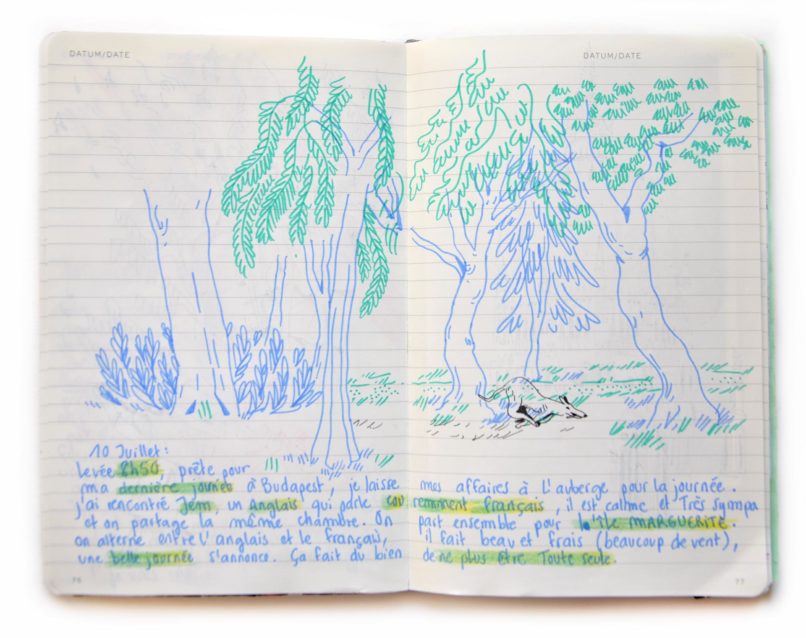 DATUM/DATE
DATUM/DATE
10 Juillet:
Levée 8h50, prête pour
ma dernière journée à Budapest, je laisse mes affaires à L'auberge pour la journée.
j'ai rencontré Jem, un Anglais qui parle couremment français, il est calme et Très sympa
et on partage la même chambre. On part ensemble pour l'île MARGUERITE.
on alterne entre L'anglais et le français, il fait beau et frais (beaucoup de vent),
une belle journée s'annonce. Ça fait du bien de ne plus être Toute seule.
76
77